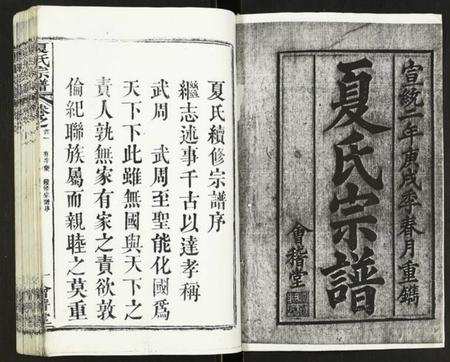 宣統二年庚戌年春月重鐫
夏氏宗譜
會稽堂
夏氏續修宗譜序
繼志述事千古以達孝稱
武周 武周至聖能化國爲
天下下此雖無國與天下之
責人孰無家有家之責欲敦
倫紀聯族屬而親睦之莫重
夏氏宗譜
會稽堂